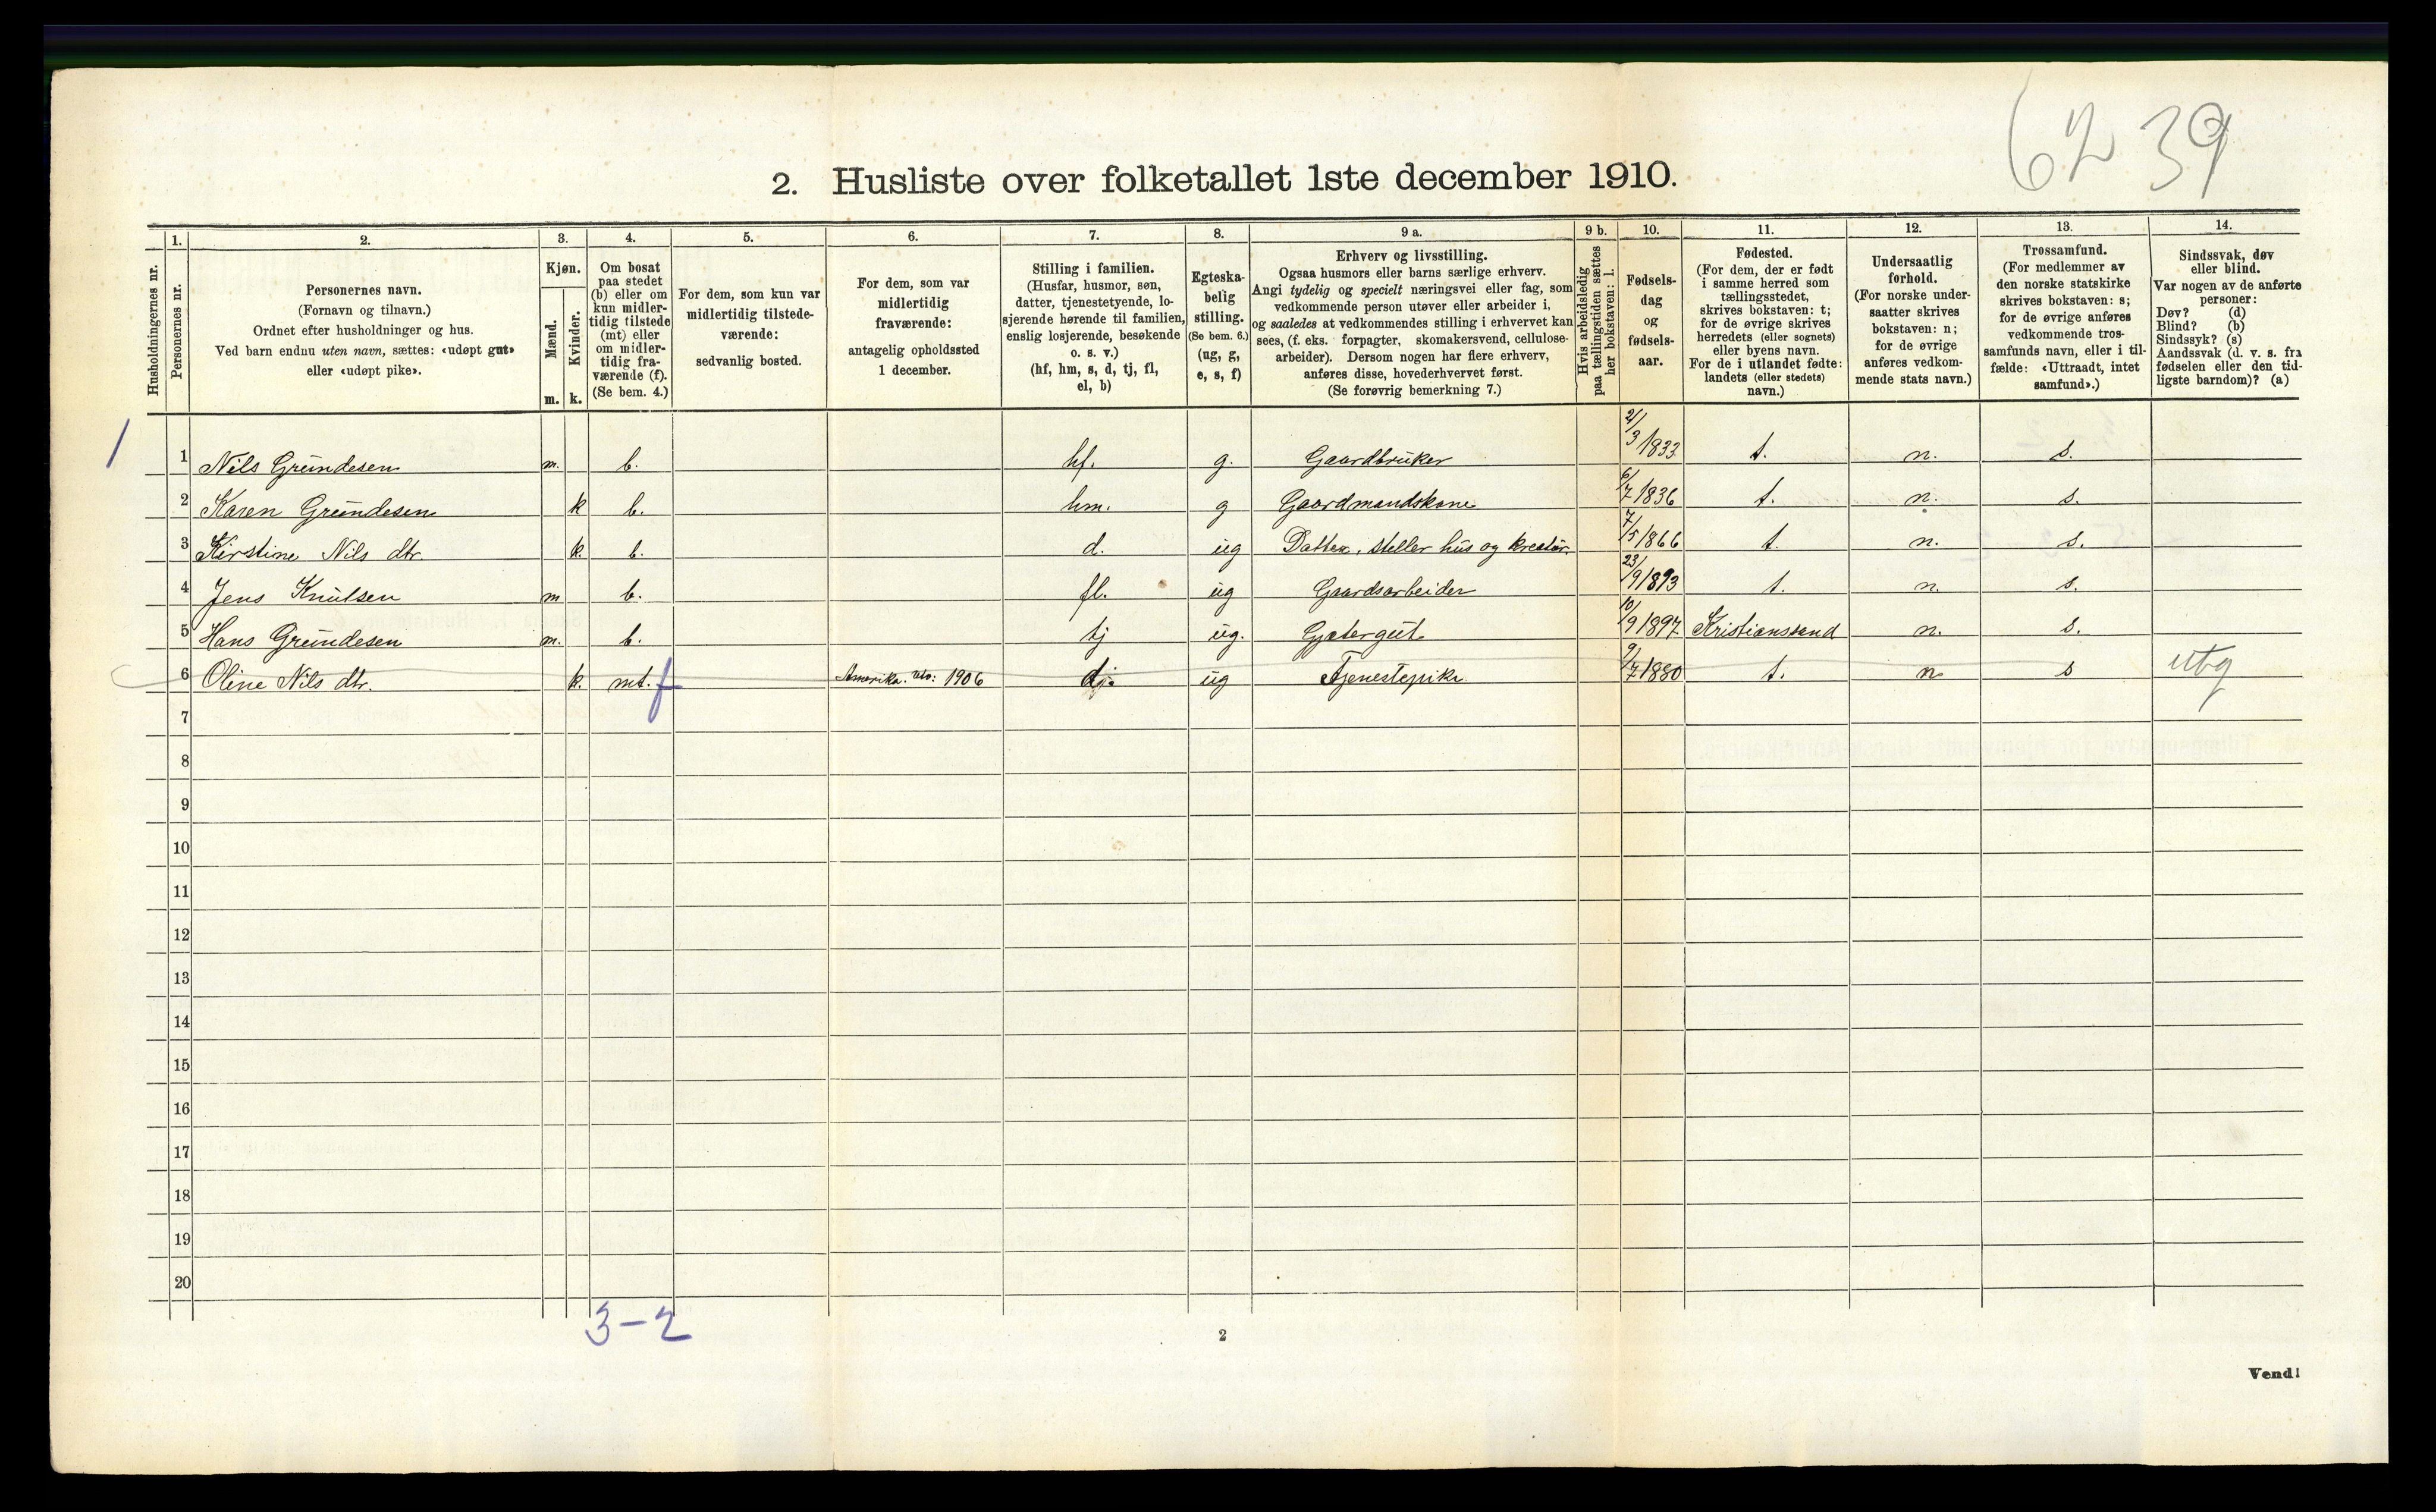 62 39
2. Husliste over folketallet 1ste december 1910.
Husholdningernes nr.
1.
Personernes nr.
2.
Personernes navn.
(Fornavn og tilnavn.)
Ordnet efter husholdninger og hus.
Ved barn endnu uten navn, sættes: «udøpt gut»
eller «udøpt pike».
3.
Kjøn.
Mænd.
Kvinder.
m. k.
4.
Om bosat
paa stedet
(b) eller om
kun midler-
tidig tilstede
(mt) eller
om midler-
tidig fra-
værende (f).
(Se bem. 4.)
5.
For dem, som kun var
midlertidig tilstede-
værende:
sedvanlig bosted.
6.
For dem, som var
midlertidig
fraværende:
antagelig opholdssted
1 december.
7.
Stilling i familien.
(Husfar, husmor, søn,
datter, tjenestetyende, lo-
sjerende hørende til familien,
enslig losjerende, besøkende
o. s. v.)
(hf, hm, s, d, tj, fl,
el, b)
8.
Egteska-
belig
stilling.
(Se bem. 6.)
(ug, g,
e, s, f)
9 a.
Erhverv og livsstilling.
Ogsaa husmors eller barns særlige erhverv.
Angi tydelig og specielt næringsvei eller fag, som
vedkommende person utøver eller arbeider i,
og saaledes at vedkommendes stilling i erhvervet kan
sees, (f. eks. forpagter, skomakersvend, cellulose-
arbeider). Dersom nogen har flere erhverv,
anføres disse, hovederhvervet først.
(Se forøvrig bemerkning 7.)
9 b.
Hvis arbeidsledig
paa tællingstiden sættes
her bokstaven: l.
10.
Fødsels-
dag
og
fødsels-
aar.
11.
Fødested.
(For dem, der er født
i samme herred som
tællingsstedet,
skrives bokstaven: t;
for de øvrige skrives
herredets (eller sognets)
eller byens navn.
For de i utlandet fødte:
landets (eller stedets)
navn.)
12.
Undersaatlig
forhold.
(For norske under-
saatter skrives
bokstaven: n;
for de øvrige
anføres vedkom-
mende stats navn.)
13.
Trossamfund.
(For medlemmer av
den norske statskirke
skrives bokstaven: s;
for de øvrige anføres
vedkommende tros-
samfunds navn, eller i til-
fælde: «Uttraadt, intet
samfund».)
14.
Sindssvak, døv
eller blind.
Var nogen av de anførte
personer:
Døv? (d)
Blind? (b)
Sindssyk? (s)
Aandssvak (d. v. s. fra
fødselen eller den tid-
ligste barndom)? (a)
1 1 Nils Grundesen m. b. hf. g. Gaardbruker 2/3 1833 t. n. s.
2 Karen Grundesen k b. hm. g Gaardmandskone 6/7 1836 t. n. s.
3 Kirstine Nils dtr. k. b. d. ug Datter, steller hus og kreatur. 7/5 1866 t. n. s.
4 Jens Knutsen m b. fl. ug Gaardsarbeider 23/9 1893 t. n. s.
5 Hans Grundesen m. b. tj ug. Gjætergut 10/9 1897 Kristianssand n. s.
6 Oline Nils dtr. k. mt. f Amerika. Utv: 1906 ug Tjenestepike 9/7 1880 t. n s utg
7
8
9
10
11
12
13
14
15
16
17
18
19
20
3-2
2
Vend!